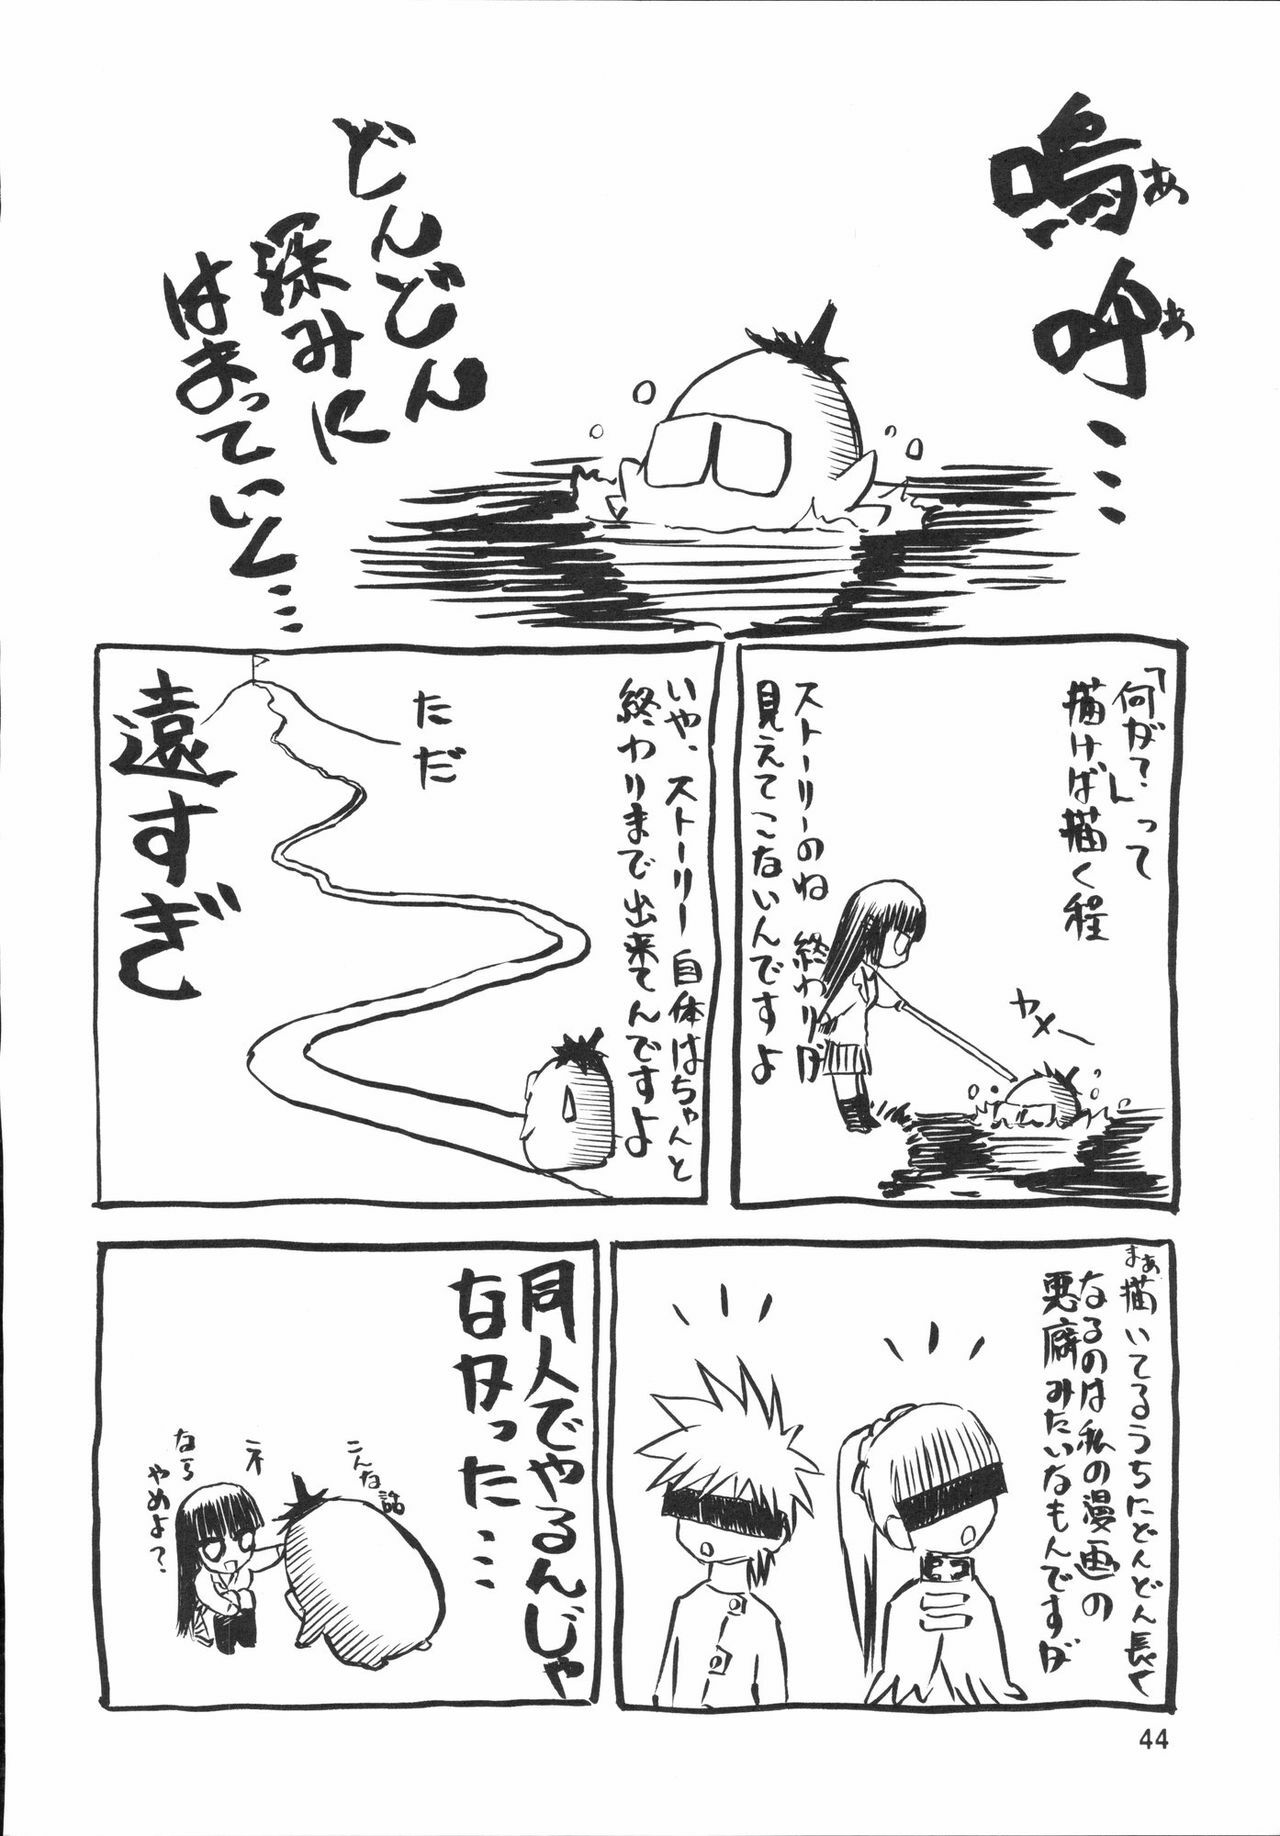 嗚呼…
ああ
どんどん
深みに
はまっていく…
「何が?」って
描けば描く程
ストーリーのね 終わりが
見えてこないんですよ
ヤメー
いや、ストーリー自体はちゃんと
終わりまで出来てんですよ
ただ
遠すぎ
まあ描いてるうちにどんどん長く
なるのは私の漫画の
悪癖みたいなもんですが
同人でやるんじゃ
なかった…
こんな話
ネ
なら
やめよ?
44